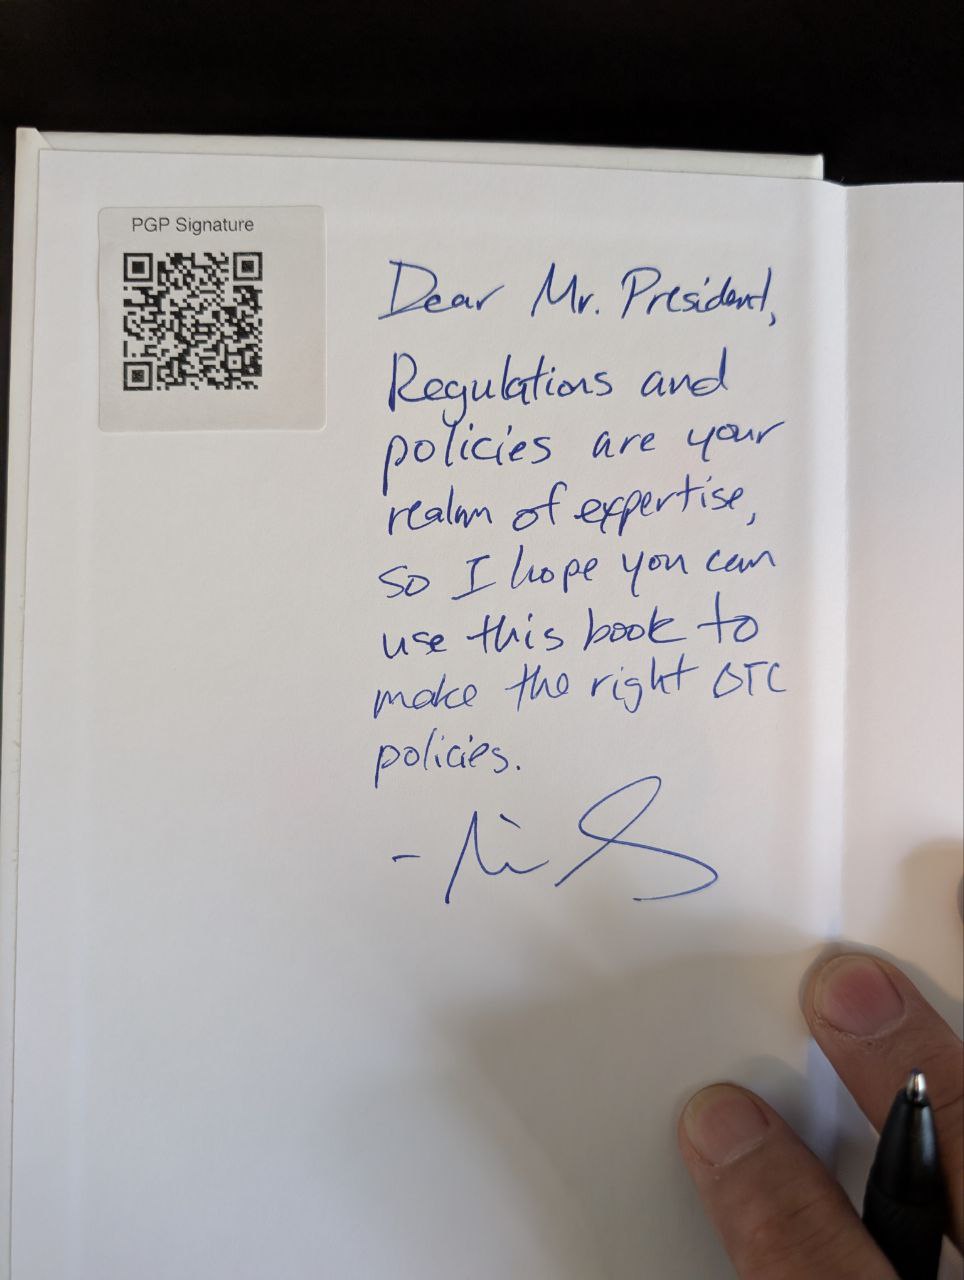 PGP Signature
Dear Mr. President,
Regulations and
policies are your
realm of expertise,
so I hope you can
use this book to
make the right OTC
policies.